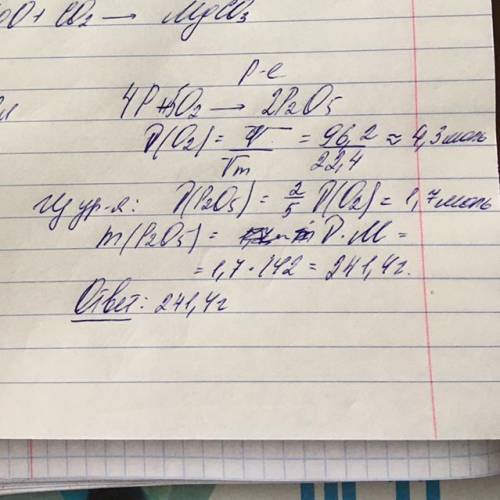 O + CO2 → MgCO3
р-е
4P + 5O2 → 2P2O5
ν(O2) = V/Vm = 96,2/22,4 ≈ 4,3 моль
Из ур-я: ν(P2O5) = 2/5 ν(O2) = 1,7 моль
m(P2O5) = ν · M =
= 1,7 · 142 = 241,4 г.
Ответ: 241,4 г